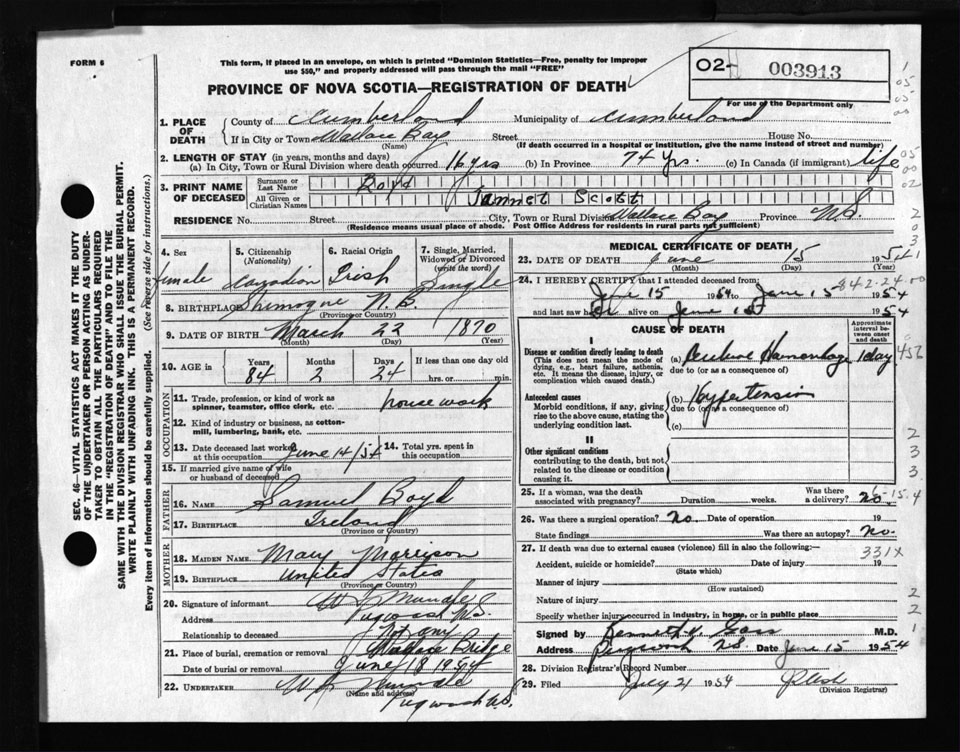 FORM 6
This form, if placed in an envelope, on which is printed "Dominion Statistics—Free, penalty for improper
use $50," and properly addressed will pass through the mail "FREE"
02-
003913
PROVINCE OF NOVA SCOTIA—REGISTRATION OF DEATH
For use of the Department only
1. PLACE OF DEATH
County of Cumberland Municipality of Cumberland
If in City or Town Wallace Bay Street House No.
(Name) (If death occurred in a hospital or institution, give the name instead of street and number)
2. LENGTH OF STAY (in years, months and days)
(a) In City, Town or Rural Division where death occurred 16 yrs (b) In Province 74 yrs. (c) In Canada (if immigrant) life
3. PRINT NAME OF DECEASED
Surname or Last Name Boyd
All Given or Christian Names Jannet Scott
RESIDENCE No. Street City, Town or Rural Division Wallace Bay Province N.S.
(Residence means usual place of abode. Post Office Address for residents in rural parts not sufficient)
4. Sex
female
5. Citizenship (Nationality)
Canadian
6. Racial Origin
Irish
7. Single, Married, Widowed or Divorced (write the word)
Single
8. BIRTHPLACE Shimogue N.B.
(Province or Country)
9. DATE OF BIRTH March 22 1870
(Month) (Day) (Year)
10. AGE in
Years Months Days If less than one day old
84 2 24 hrs. or min.
OCCUPATION
11. Trade, profession, or kind of work as spinner, teamster, office clerk, etc. house work
12. Kind of industry or business, as cotton-mill, lumbering, bank, etc.
13. Date deceased last worked at this occupation June 14/54
14. Total yrs. spent in this occupation
15. If married give name of wife or husband of deceased
FATHER
16. NAME Samuel Boyd
17. BIRTHPLACE Ireland
(Province or Country)
MOTHER
18. MAIDEN NAME Mary Morrison
19. BIRTHPLACE United States
(Province or Country)
20. Signature of informant
Address Pugwash N.S.
Relationship to deceased Not any
21. Place of burial, cremation or removal Wallace Bridge
Date of burial or removal June 18 1954
22. UNDERTAKER
(Name and address)
Pugwash N.S.
MEDICAL CERTIFICATE OF DEATH
23. DATE OF DEATH June 15 1954
(Month) (Day) (Year)
24. I HEREBY CERTIFY that I attended deceased from:
June 15 1954 to June 15 1954
and last saw her alive on June 15 1954
CAUSE OF DEATH
Approximate interval between onset and death
I
Disease or condition directly leading to death
(This does not mean the mode of dying, e.g., heart failure, asthenia, etc. It means the disease, injury, or complication which caused death.)
(a) Cerebral Hemorrhage 1 day
due to (or as a consequence of)
Antecedent causes
Morbid conditions, if any, giving rise to the above cause, stating the underlying condition last.
(b) Hypertension
due to (or as a consequence of)
(c)
II
Other significant conditions
contributing to the death, but not related to the disease or condition causing it.
25. If a woman, was the death associated with pregnancy? Duration weeks. Was there a delivery? no
26. Was there a surgical operation? No. Date of operation 19
State findings Was there an autopsy? No.
27. If death was due to external causes (violence) fill in also the following:—
331X
Accident, suicide or homicide? Date of injury 19
(State which)
Manner of injury
(How sustained)
Nature of injury
Specify whether injury occurred in industry, in home, or in public place
Signed by M.D.
Address Pugwash N.S. Date June 15 1954
28. Division Registrar's Record Number
29. Filed July 21 1954
(Division Registrar)
SEC. 46—VITAL STATISTICS ACT MAKES IT THE DUTY
OF THE UNDERTAKER OR PERSON ACTING AS UNDER-
TAKER TO OBTAIN ALL THE PARTICULARS REQUIRED
IN THE "REGISTRATION OF DEATH" AND TO FILE THE
SAME WITH THE DIVISION REGISTRAR WHO SHALL ISSUE THE BURIAL PERMIT.
WRITE PLAINLY WITH UNFADING INK. THIS IS A PERMANENT RECORD.
Every item of information should be carefully supplied. (See reverse side for instructions.)